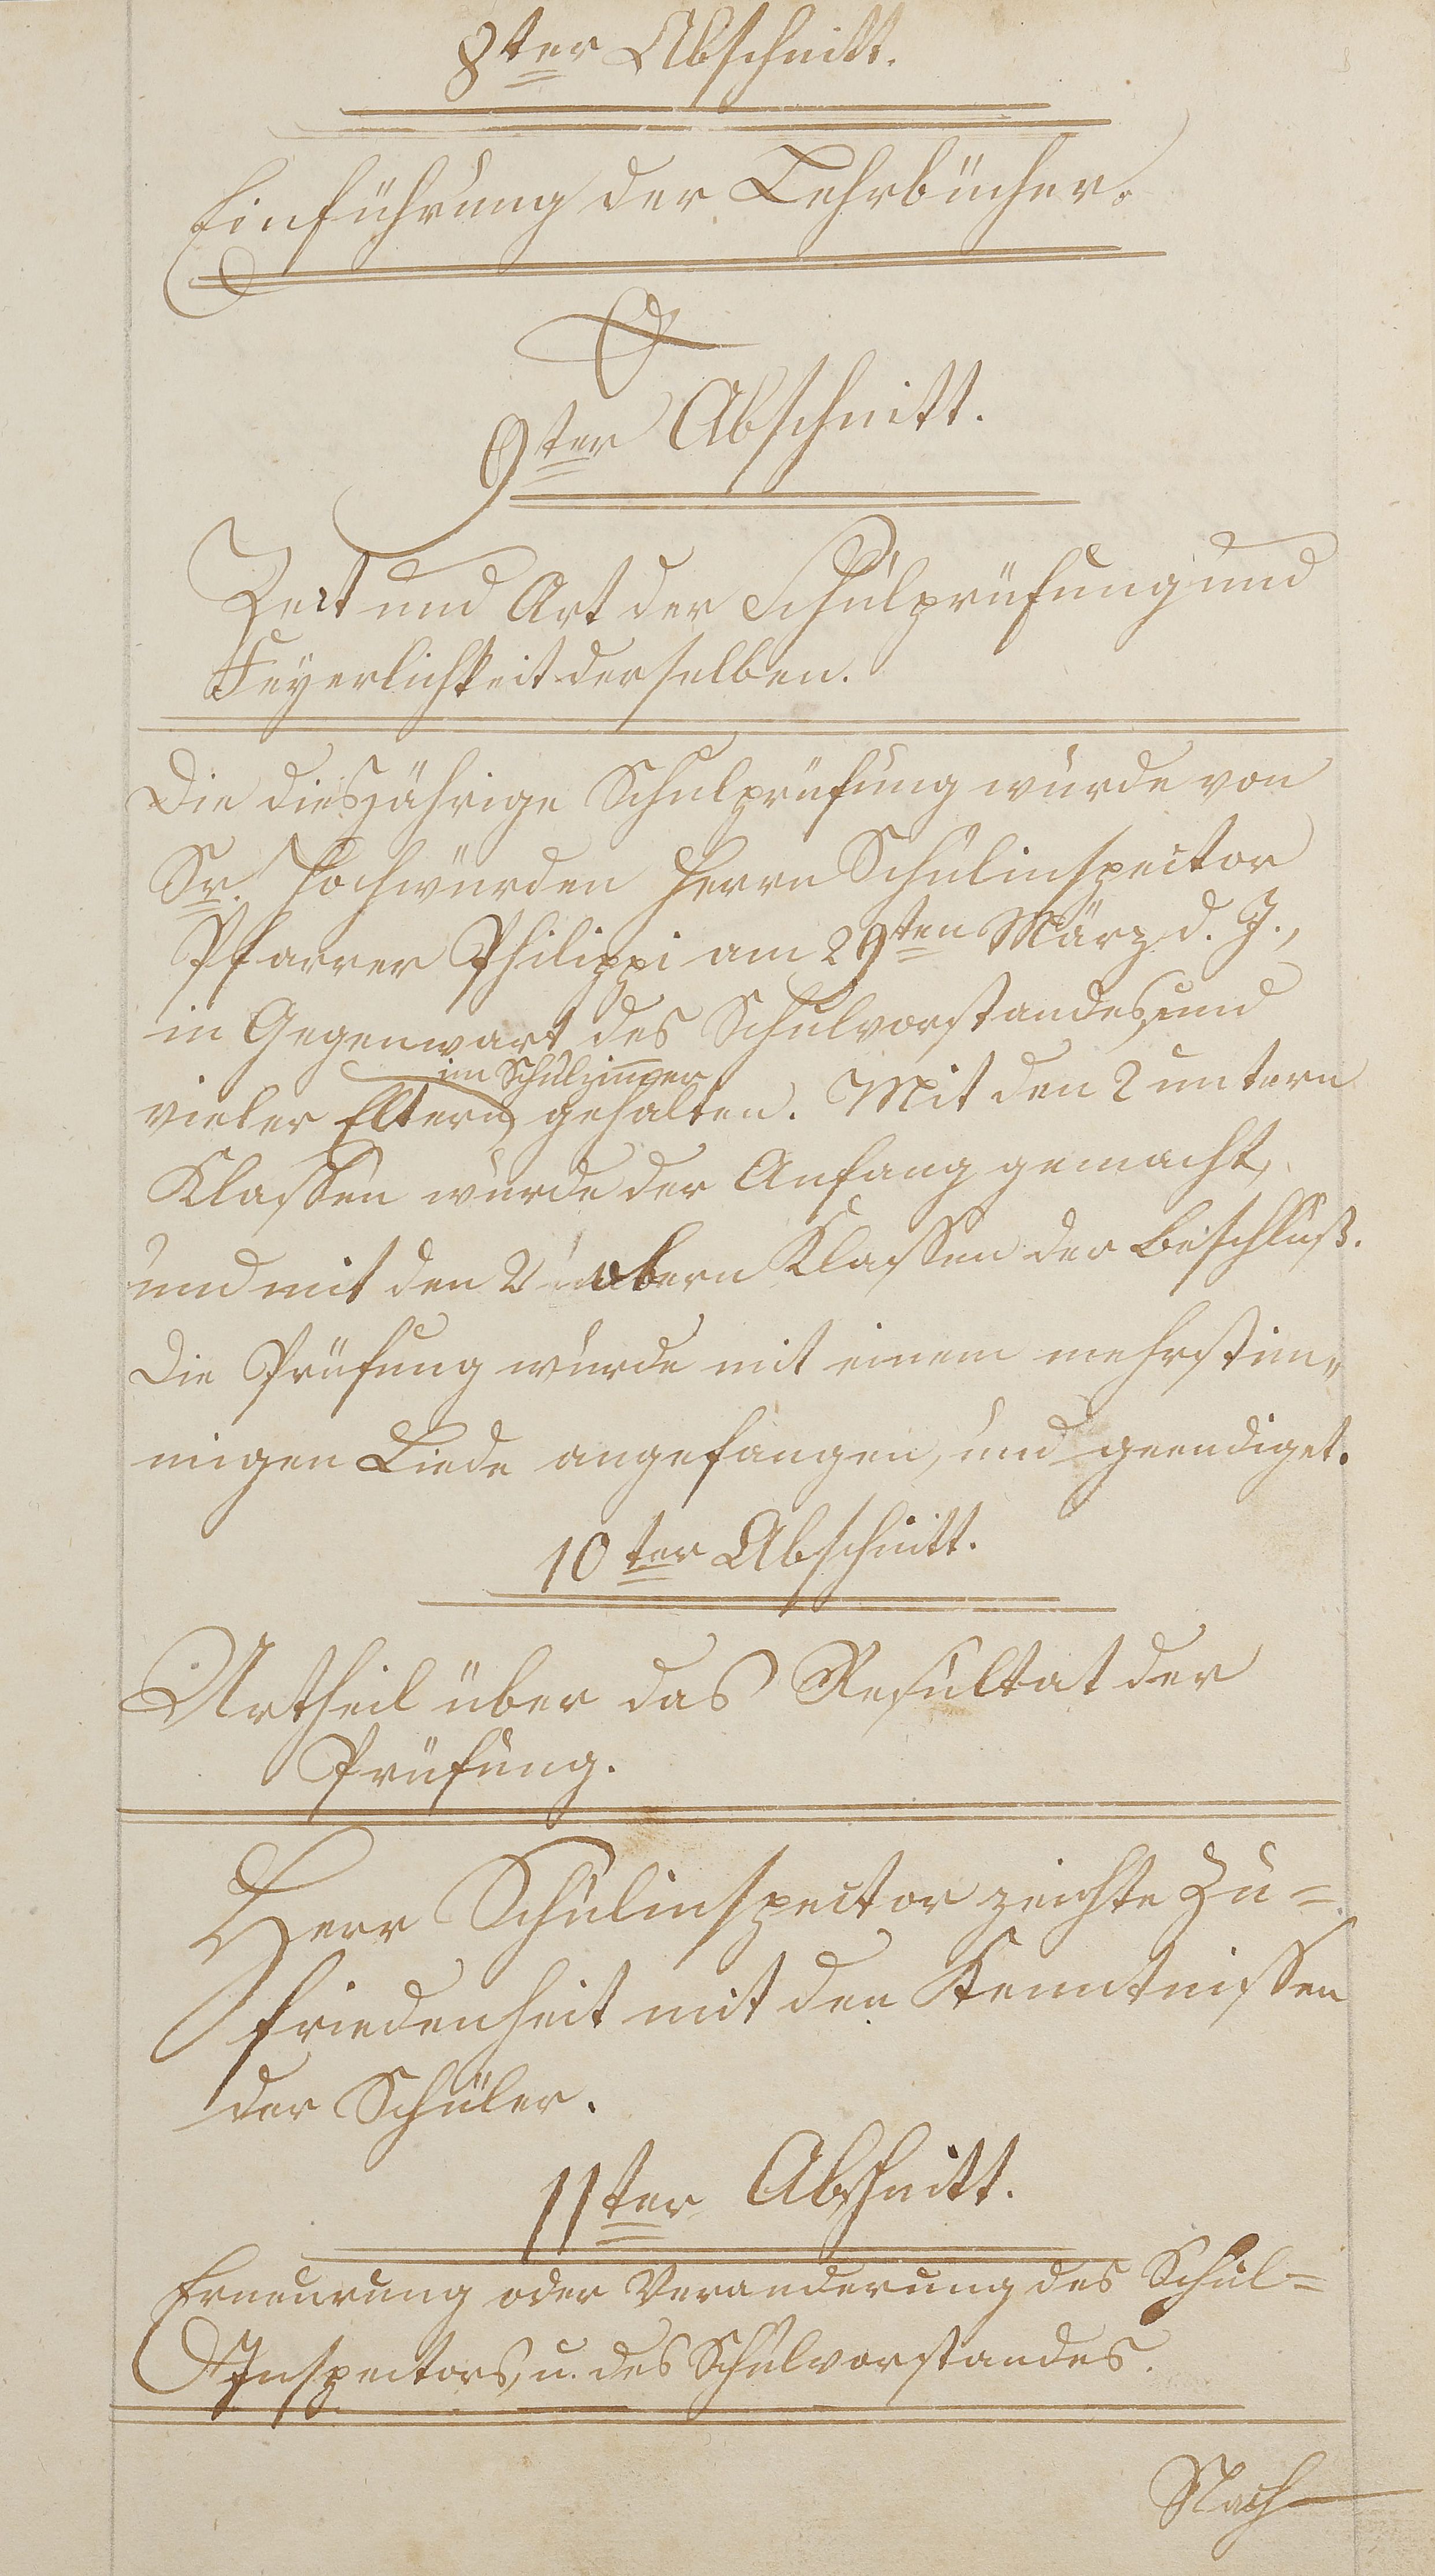 8ter Abschnitt.
Einführung der Lehrbücher.
9ter Abschnitt.
Zeit und Art der Schulprüfung und
Feyerlichkeit derselben.
Die diesjährige Schulprüfung wurde von
Sr. Hochwürden Herrn Schulinspector
Pfarrer Philippi am 29ten März d. J.,
in Gegenwart des Schulvorstandes und
im Schulzimer
vieler Eltern gehalten. Mit den 2 untern
Klassen wurde der Anfang gemacht,
und mit den 2 obern Klassen der Beschluß.
Die Prüfung wurde mit einem mehrstim„
migen Liede angefangen, und geendiget.
10ter Abschnitt.
Urtheil über das Resultat der
Prüfung.
Herr Schulinspector zeichte Zu=
friedenheit mit den Kenntnissen
der Schüler.
11ter Abschnitt.
Erneurung oder Veranderung des Schul=
Inspectors, u. des Schulvorstandes.
Nach